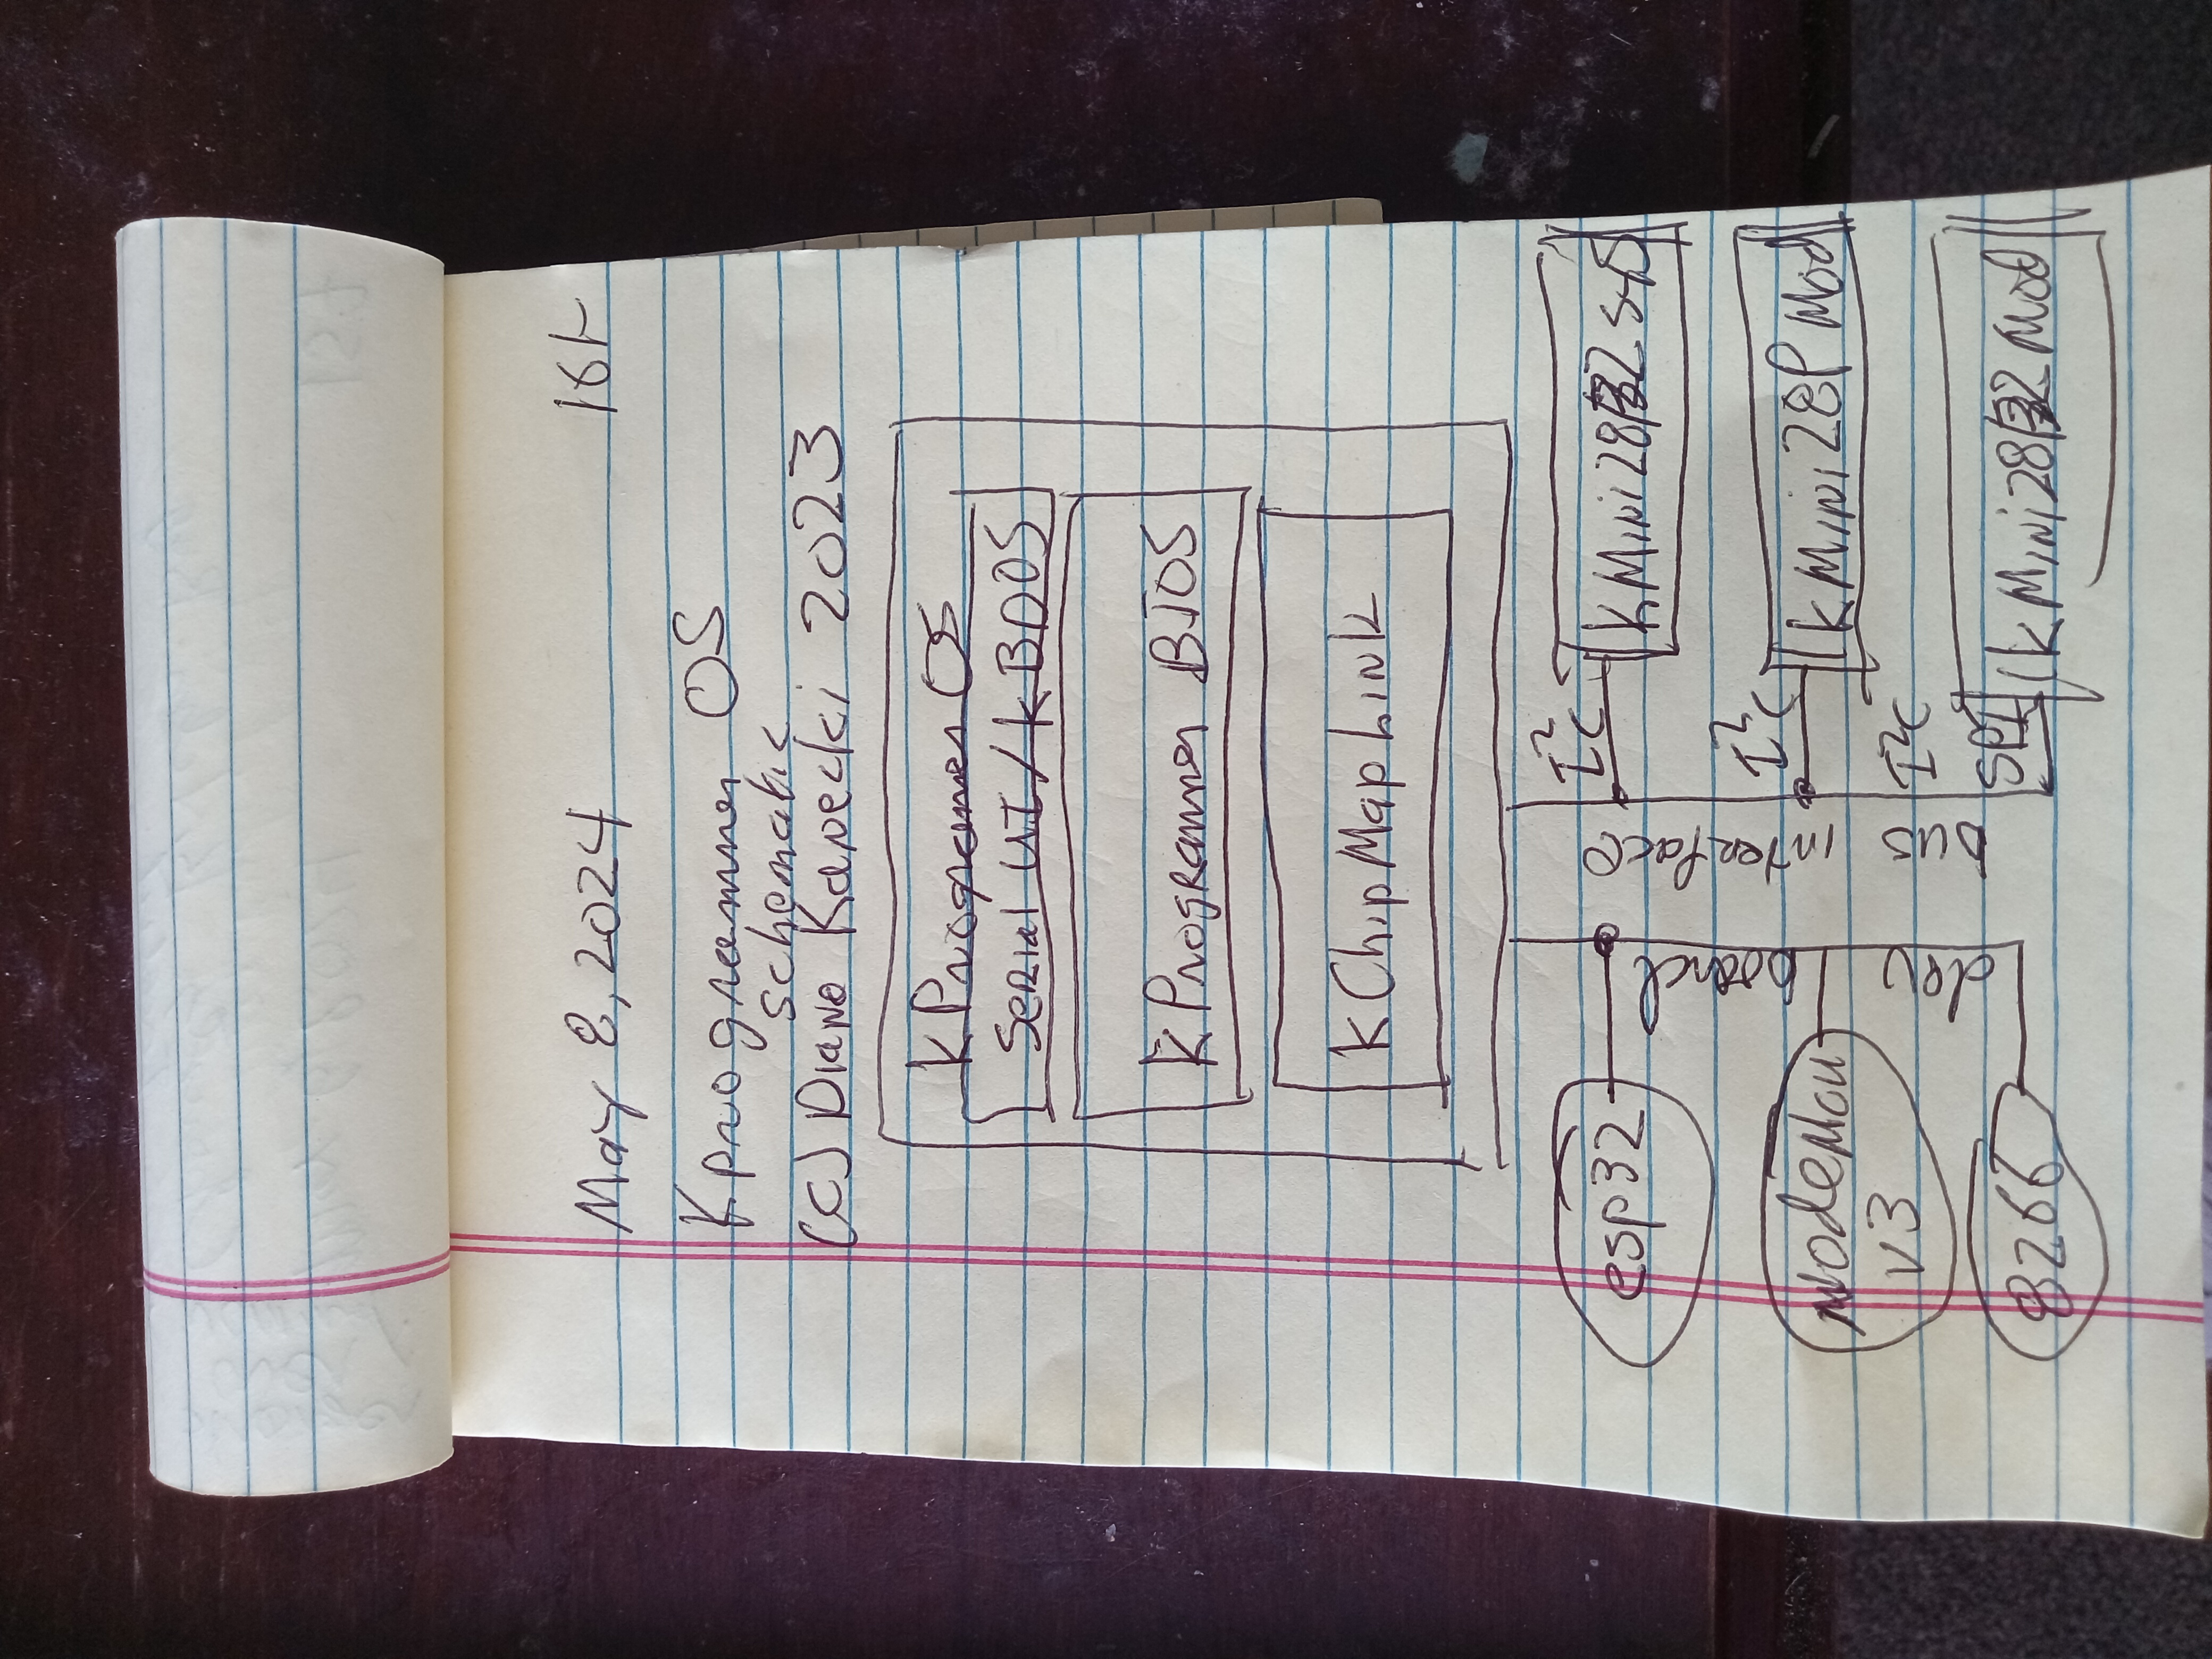 May 8, 2024
Kprogrammer OS
schematic
(C) Diano Kapecki 2023
kProgrammer OS
Serial UI/kBDOS
kProgrammer BIOS
kChipMapLink
esp32
I²C
kMini28/32
dev board
bus interface
I²C
kMini28P Mod
NodeMcu
v3
I²C
SPI
kMini28/32 Mod
8266